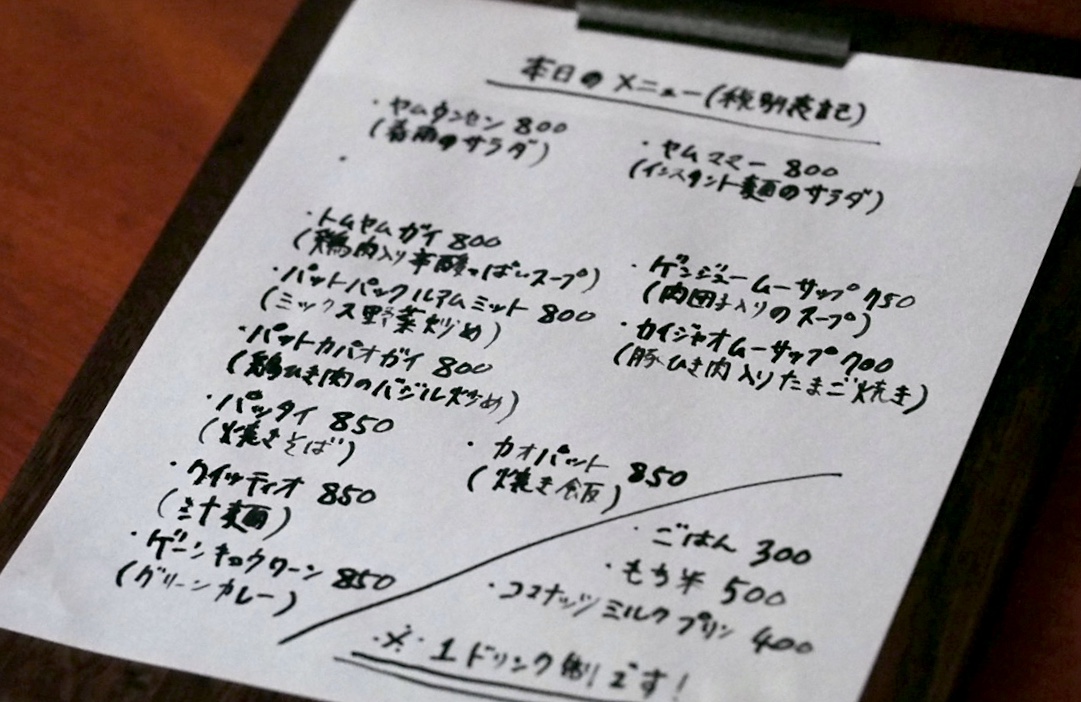 本日のメニュー(税別表記)
・ヤムウンセン 800
(春雨のサラダ)
・ヤムママー 800
(インスタント麺のサラダ)
・トムヤムガイ 800
(鶏肉入り辛酸っぱいスープ)
・ゲンジュームーサップ 750
(肉団子入りのスープ)
・パットパックルアムミット 800
(ミックス野菜炒め)
・カイジャオムーサップ 700
(豚ひき肉入りたまご焼き)
・パットカパオガイ 800
(鶏ひき肉のバジル炒め)
・パッタイ 850
(焼きそば)
・カオパット 850
(焼き飯)
・クイッティオ 850
(汁麺)
・ゲーンキョウワーン 850
(グリーンカレー)
・ごはん 300
・もち米 500
・ココナッツミルクプリン 400
※1ドリンク制です!